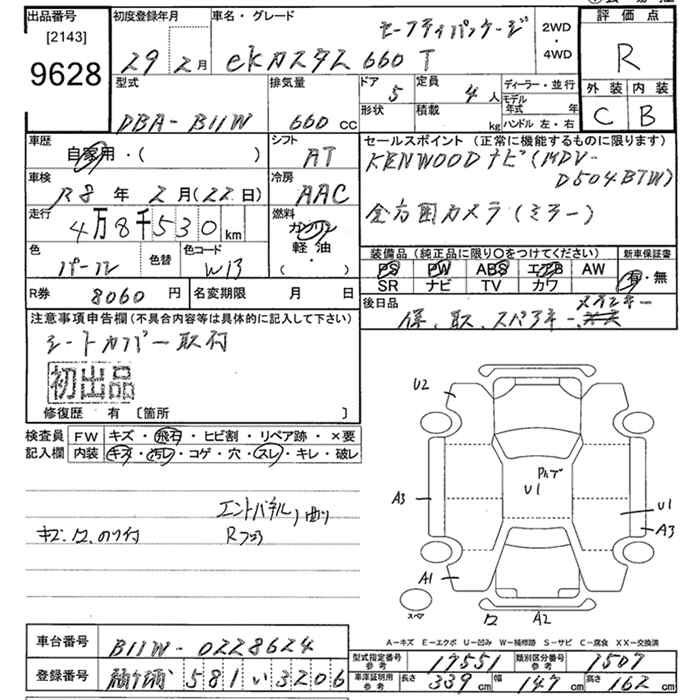 出品番号
[2143]
9628
初度登録年月
29 2月
車名・グレード
セーフティパッケージ
ekカスタム 660 T
2WD
・
4WD
評価点
R
外装 内装
C B
型式
DBA-B11W
排気量
660 cc
ドア 5
定員 4人
形状
積載 kg
ディーラー・並行
モデル年式 年
ハンドル 左・右
車歴
自家用・( )
シフト
AT
車検
R8年 2月(22日)
冷房
AAC
走行
4万8千530km
燃料
ガソリン
軽・油
( )
色
パール
色替
色コード
W13
R券 8060円
名変期限 月 日
セールスポイント(正常に機能するものに限ります)
KENWOODナビ(MDV-
D504BTW)
全方囲カメラ(ミラー)
装備品(純正品に限り○をつけてください)
PS PW ABS エアB AW
SR ナビ TV カワ
新車保証書
有・無
後日品
保、取、スペアキー、
メインキー
注意事項申告欄(不具合内容等は具体的に記入して下さい)
シートカバー取付
初出品
修復歴 有 [箇所 ]
検査員
記入欄
FW キズ・飛石・ヒビ割・リペア跡・×要
内装 キズ・汚レ・コゲ・穴・スレ・キレ・破レ
エンドパネル、曲り
R フロア
キズ.
U2
A3
U1
U1
A3
A1
A2
スペア
A-キズ E-エクボ U-凹み W-補修跡 S-サビ C-腐食 XX-交換済
車台番号
B11W-0228624
登録番号
581 い 3206
型式指定番号
参考
17551
類別区分番号
参考
1507
車庫証明用
参考
長さ 339cm 幅 147cm 高さ 162cm